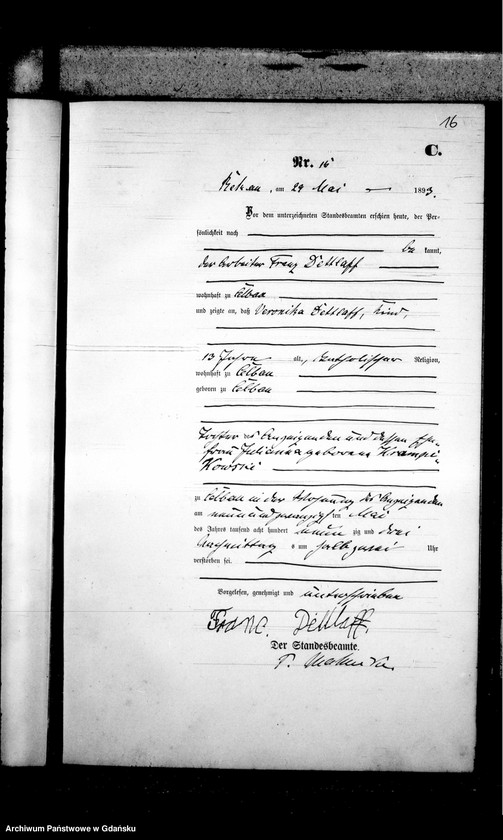 16
C.
Nr. 16
Rekau, am 29 Mai 1893.
Vor dem unterzeichneten Standesbeamten erschien heute, der Per-
sönlichkeit nach
be kannt,
der Arbeiter Franz Dettlaff
wohnhaft zu Celbau
und zeigte an, daß Veronika Dettlaff, Kind,
13 Jahre alt, katholischer Religion,
wohnhaft zu Celbau
geboren zu Celbau
Tochter des Anzeigenden und dessen Ehe-
frau Julianna geborene Krampi-
kowski
zu Celbau in der Wohnung des Anzeigenden
am neunundzwanzigsten Mai
des Jahrs tausend acht hundert neun zig und drei
Nachmittags um halb zwei Uhr
verstorben sei.
Vorgelesen, genehmigt und unterschrieben
Franc. Dettlaff.
Der Standesbeamte.
Archiwum Państwowe w Gdańsku